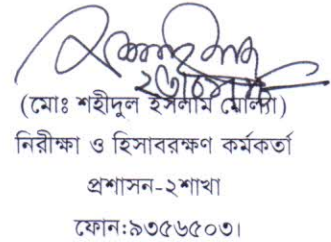 (মোঃ শহীদুল ইসলাম মোল্যা)
নিরীক্ষা ও হিসাবরক্ষণ কর্মকর্তা
প্রশাসন-২শাখা
ফোন:৯৩৫৬৫০৩।